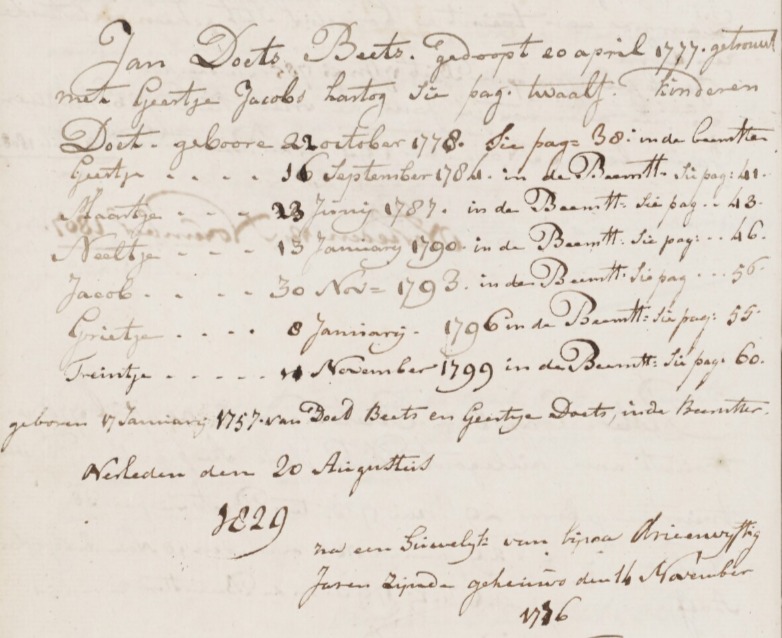 Jan Doets Beets. gedoopt 20 april 1777. getrouwt
met Geertje Jacobs hartog Sie pag. twaalf. Kinderen
Doet. geboore 22 october 1778. Sie pag= 38: in de beemster
Geertje . . . . 16 September 1784. in de Beemst: Sie pag: 41.
Maartje . . . . 23 Junij 1787. in de Beemst: Sie pag . . 43.
Neeltje . . . . 13 January 1790. in de Beemst: Sie pag: . . 46.
Jacob. . . . . 30 Nov= 1793. in de Beemst: Sie pag . . . 56
Grietje . . . . 8 Januarij. 1796 in de Beemst: Sie pag: 55.
Treintje . . . . . 11 November 1799 in de Beemst: Sie pag. 60.
geboren 17 Januarij 1757. van Doed Beets en Geertje Doets, in de Beemster.
Overleden den 20 Augustus
1829
na een huwelijk van bijna drieenvijftig
Jaren zijnde gehuwd den 14 November
1776